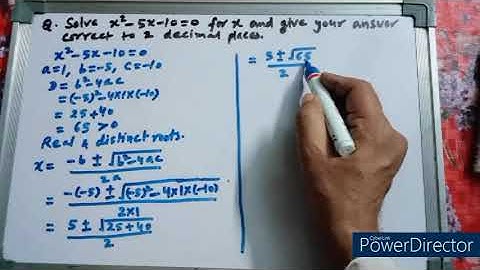 Q. Solve x²-5x-10=0 for x and give your answer
correct to 2 decimal places.
x²-5x-10=0
a=1, b=-5, c=-10
D = b²-4ac
= (-5)²-4×1×(-10)
= 25+40
= 65 >0
Real & distinct roots.
x = -b ± √b²-4ac / 2a
= -(-5) ± √(-5)²-4×1×(-10) / 2×1
= 5 ± √25+40 / 2
= 5 ± √65 / 2
CyberLink
PowerDirector